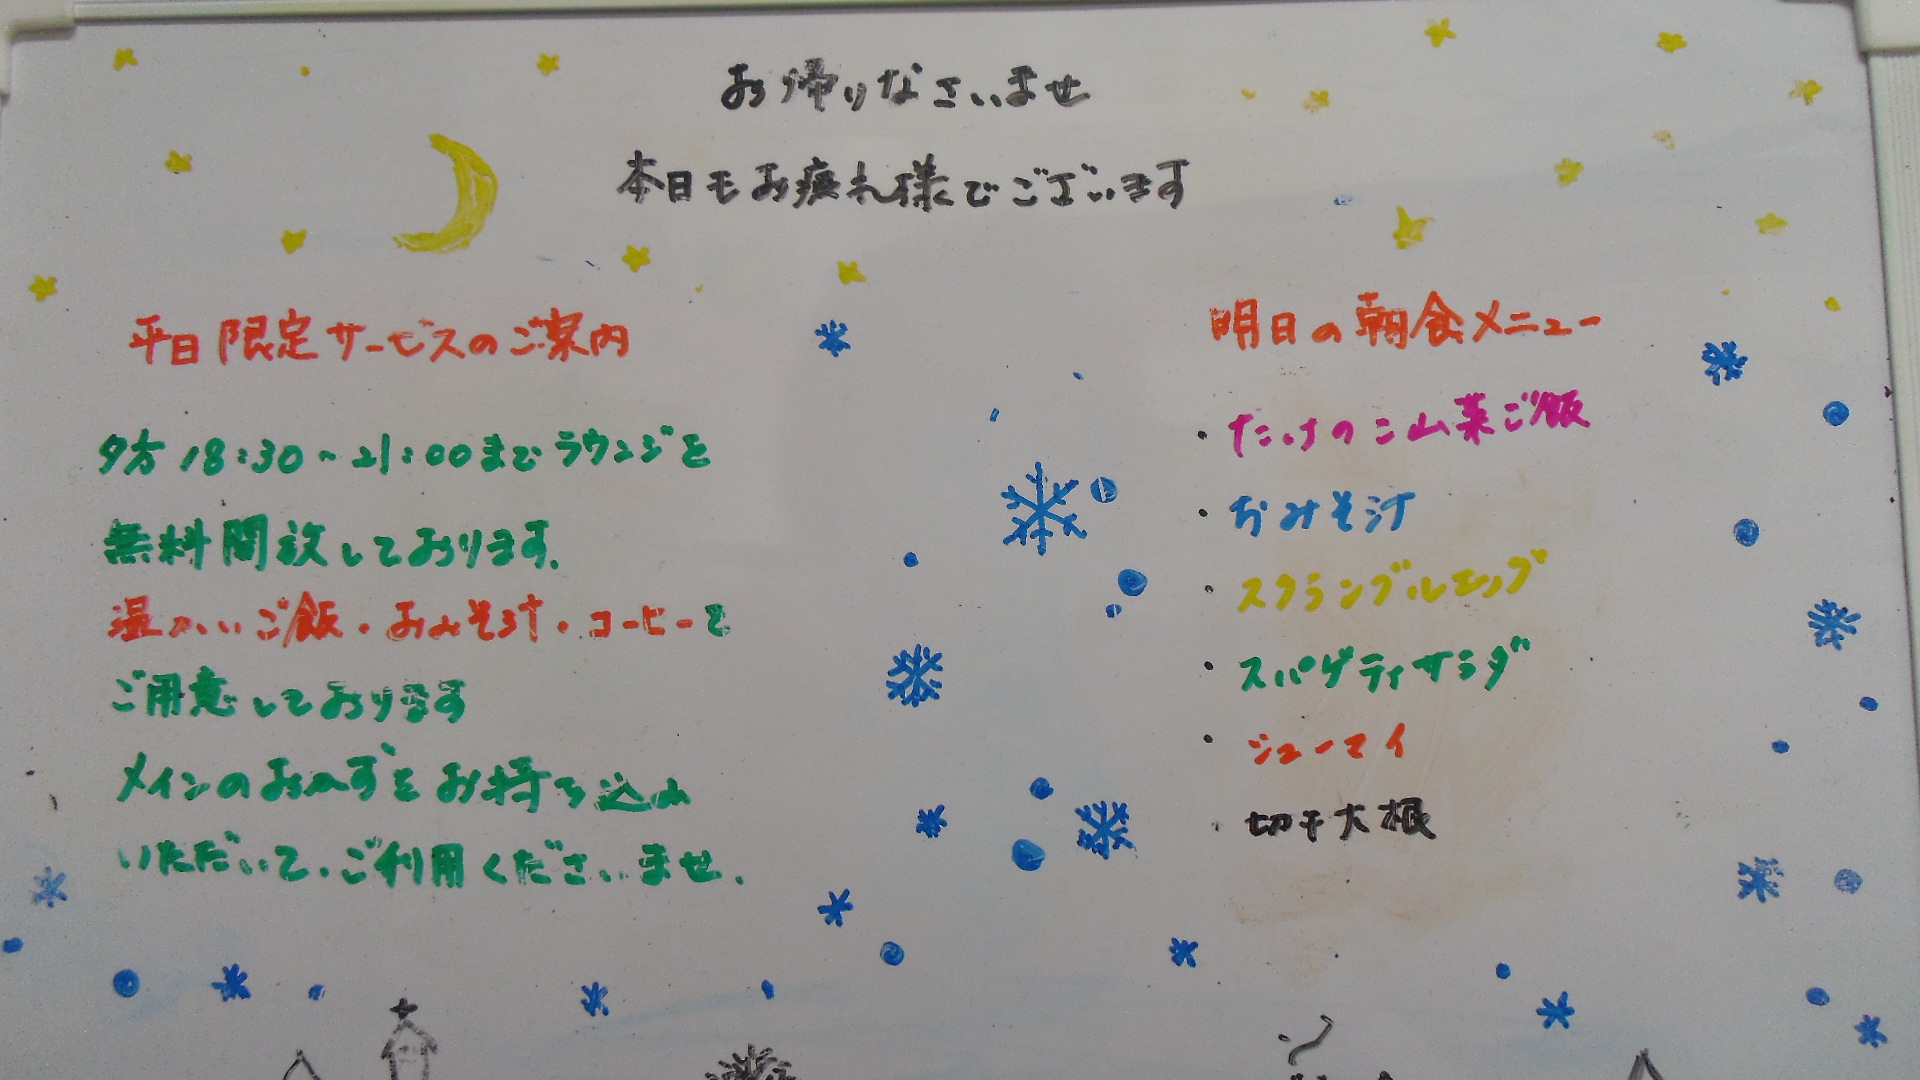 お帰りなさいませ
本日もお疲れ様でございます
平日限定サービスのご案内
夕方18:30~21:00までラウンジを
無料開放しております.
温かいご飯・おみそ汁・コーヒーを
ご用意しております
メインのおかずをお持ち込み
いただいて、ご利用くださいませ.
明日の朝食メニュー
・たけのこ山菜ご飯
・おみそ汁
・スクランブルエッグ
・スパゲティサラダ
・シューマイ
・切干大根